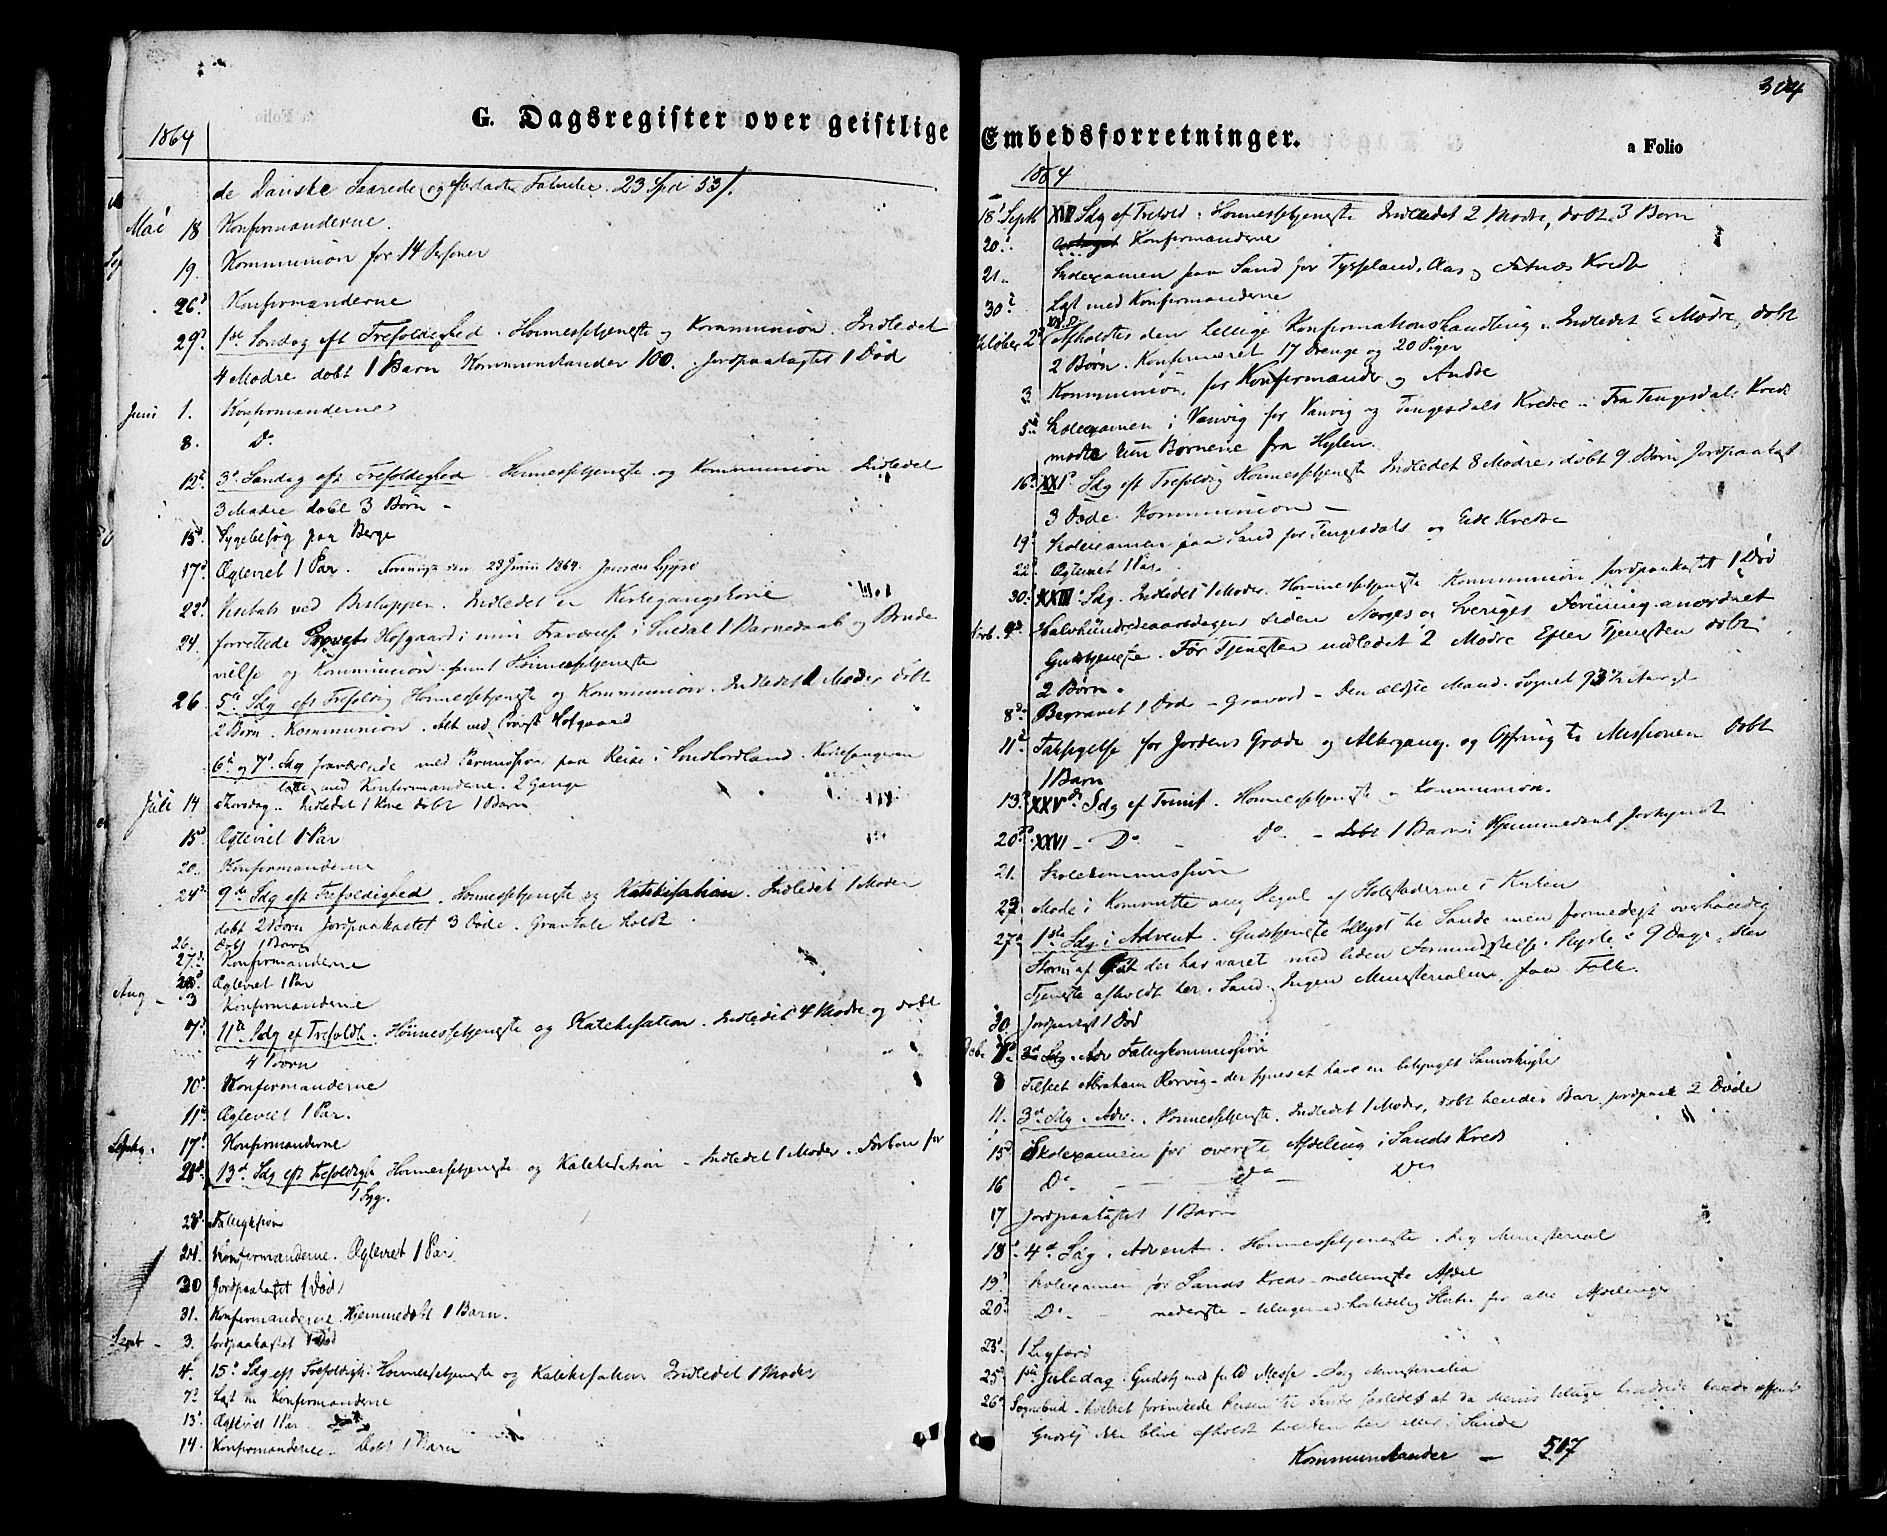 G. Dagsregister over geistlige
1864
de Danske Saarede og efterladte Familie 23 Spd 53 /.
Mai 18 Konfirmanderne.
19. Kommunion for 14 Personer
26d Konfirmanderne
29d 1ste Søndag eft Trefoldighed. Hovmessetjeneste og Kommunion. Indledet
4 Mødre døbt 1 Barn Kommunikander 100. Jordpaakastet 1 Død
Juni 1. Konfirmanderne
8. Do
12d 3d Søndag eft Trefoldighed Hovmessetjeneste og Kommunion Indledet
3 Mødre døbt 3 Børn -
15d Sygebesøg paa Berge
17d Ægteviet 1 Par. den 23 Juni 1864.
22d Visitats ved Biskoppen. Indledet en Kirkegangskone
24. forrettede Provst Hofgaard i min Fraværelse i Suldal 1 Barnedaab og Brude
vielse og Kommunion samt Hovmessetjeneste
26. 5te Sdg eft Trefoldig Hovmessetjeneste og Kommunion. Indledet 2 Mødre døbt
2 Børn. Kommunion. Alt ved Provst Hofgaard
6te og 7d Sdg fraværende med Permission paa Reise i Søndhordland. Kirkesangeren
læste med Konfirmanderne 2 Gange
Juli 14 Torsdag. Indledet 1 Kone døbt 1 Barn
15d Ægteviet 1 Par
20. Konfirmanderne
24d 9de Sdg eft Trefoldighed. Hovmessetjeneste og Katekisation. Indledet 1 Moder
døbt 2 Børn Jordpaakastet 3 Døde. Gravtale holdt
26. Døbt 1 Barn
27d Konfirmanderne
28d Ægteviet 1 Par
Aug - 3 Konfirmanderne
7d 11te Sdg ef Trefoldh. Hovmessetjeneste og Katekisation. Indledet 4 Mødre og døbt
4 Børn
10d Konfirmanderne
11te Ægteviet 1 Par.
17d Konfirmanderne
21d 13d Sdg eft trefoldigh Hovmessetjeneste og Katekisation - Indledet 1 Moder. Forbøn for
1 Syg.
24. Konfirmanderne. Ægteviet 1 Par
30 Jordpaakastet 1 Død
31. Konfirmanderne. Hjemmedøbt 1 Barn.
Sept - 3. Jordpaakastet 1 Død
4. 15d Sdg eft Trefoldigh. Hovmessetjeneste og Katekisation Indledet 1 Moder
7d Læst m Konfirmanderne
13d Ægteviet 1 Par.
14. Konfirmanderne. Døbt 1 Barn
304
Embedsforretninger.
a Folio
1864
18d Sept XVI Sdg ef Trefold. Hovmessetjeneste Indledet 2 Mødre, døbt 3 Børn
20d Konfirmanderne
21. Skolexamen paa Sand for Tysseland, Aas og Fatnæs Kredse
30d Læst med Konfirmanderne
Oktober 2d Afholdtes den hellige Konfirmationshandling. Indledet 2 Mødre, døbt
2 Børn. Konfirmeret 17 Drenge og 20 Piger
3 Kommunion for Konfirmander og Andre
5te Skolexamen i Vanvig for Vanvig og Tengesdals Kredse. Fra Tengesdals Kreds
mødte kun Børnene fra Hylen.
16d XXId Sdg eft Trefoldig Hovmessetjeneste Indledet 8 Mødre, døbt 9 Børn Jordpaakast
3 Døde. Kommunion -
19d Skolexamen paa Sand for Tengesdals og Eide Kredse
22d Ægteviet 1 Par.
30. XXIIId Sdg. Indledet 1 Moder. Hovmessetjeneste Kommunion Jordpaakastet 1 Død
Novb. 4d Halvhundredaarsdagen siden Norges og Sveriges Forening anordnet
Gudstjeneste. Før Tjenesten indledet 2 Mødre Efter Tjenesten døbt
2 Børn.
8d Begravet 1 Død - Gravord - Den ældste Mand i Sognet 93½ Aar gl
11te Taksigelse for Jordens Grøde og Altergang og Ofring til Missionen Døbt
1 Barn
13d XXVde Sdg ef Trinit. Hovmessetjeneste - Kommunion.
20de XXVI - Do Do - Døbt 1 Barn, Hjemmedøbt
21. Skolekommission
23 Møde i Kommitte ang Regul af Stolestaderne i Kirken
27d 1ste Sdg i Advent. Gudstjeneste tillyst til Sande men formedelst overhændig
Storm af Øst der har varet med liden i 9 Dage, blev
Tjeneste afholdt her i Sand. Ingen Ministerialia. faa Folk.
30. Jordpaakast 1 Død
2d Sdg. Adv Fattigkommission
11. 3d Sdg. Adv. Hovmessetjeneste. Indledet 1 Moder, døbt hendes Barn, jordpaak 2 Døde
15d Skolexamen for øverste Afdeling i Sands Kreds
16 Do - - - Do Do
17 Jordpaakastet 1 Barn
18d 4d Sdg i Advent. Hovmessetjeneste. Ing Ministerial
19d Skolexamen for Sands Kreds - mellemste Afdel
20d Do - nederste - for alle Afdelinger
23d 1 Ligfærd
25d 1ste Juledag. Gudstj med fuld Messe. Ing Ministerialia
26d Sognebud -
Gudstj ikke blive afholdt hverken her eller i Sande
Kommunikander - 507